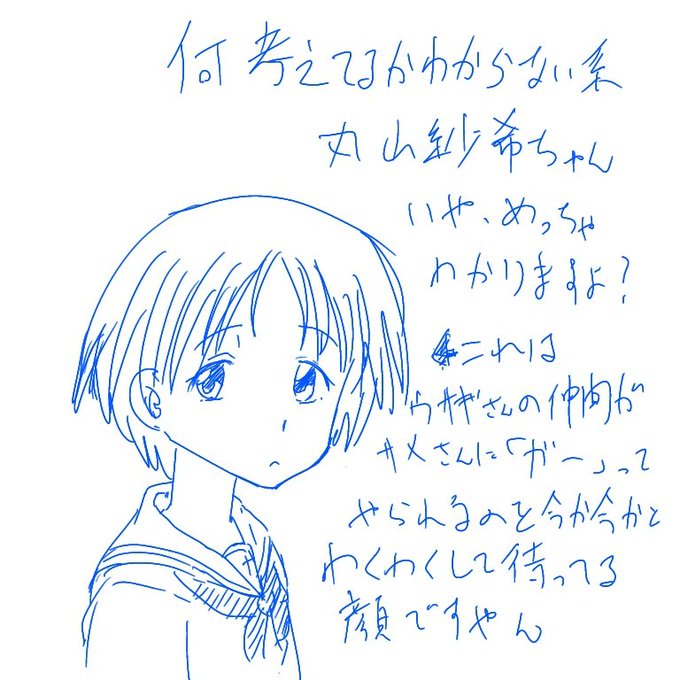 何考えてるかわからない系
丸山紗希ちゃん
いや、めっちゃ
わかりますよ?
これは
ウサギさんの仲間が
サメさんに「ガー」って
やられるのを今か今かと
わくわくして待ってる
顔ですやん